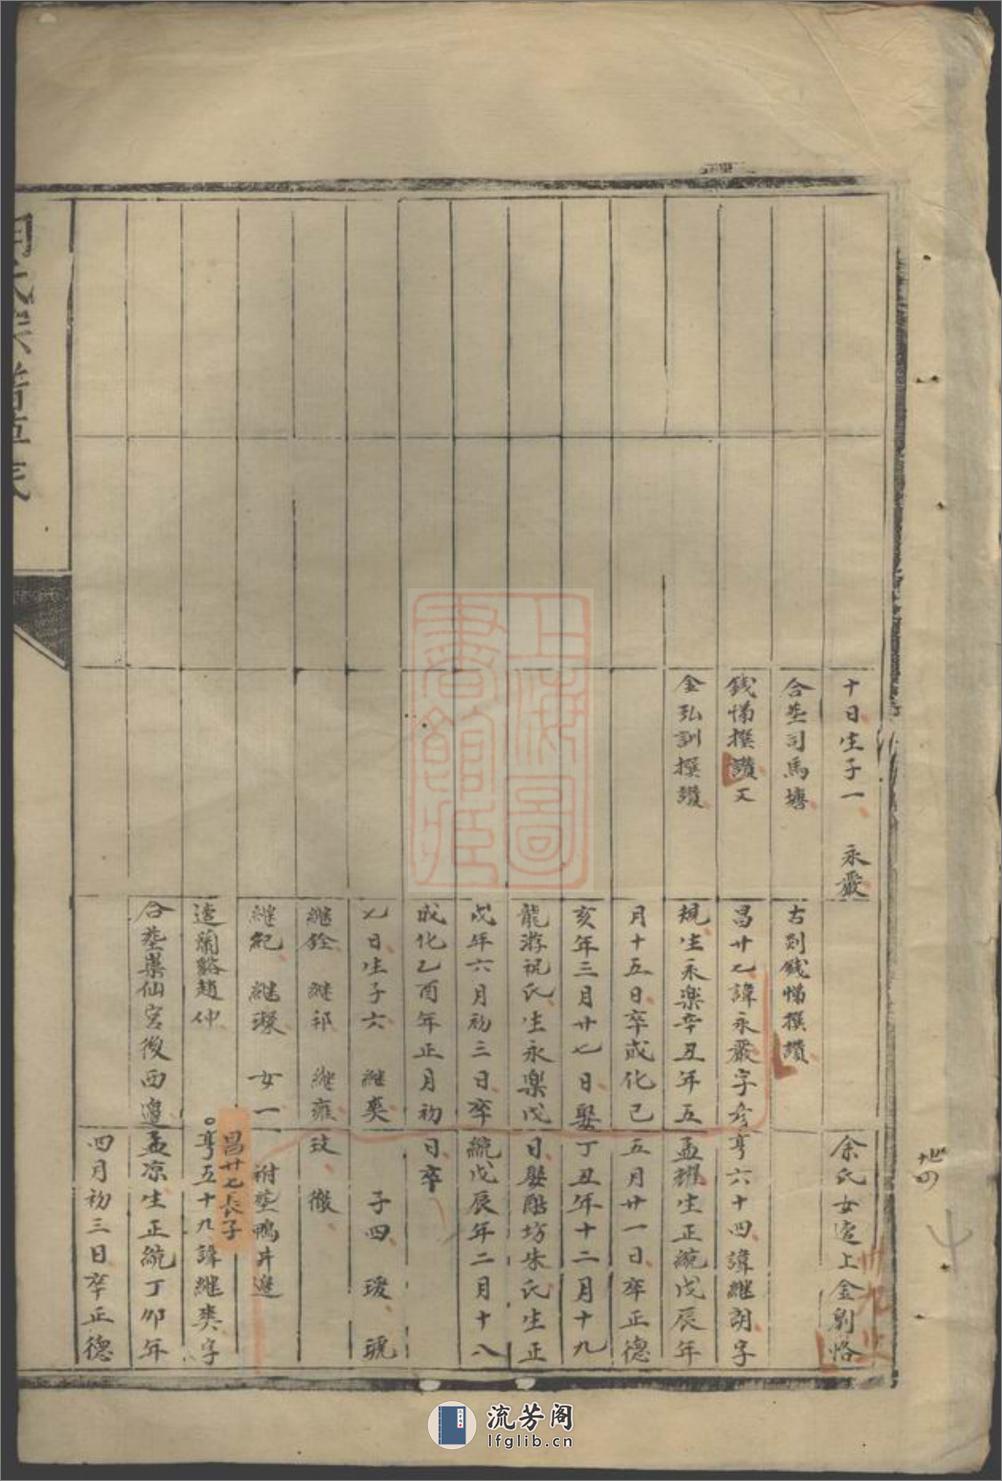 十日生子一 永嚴
合塟司馬塘
錢悌撰讚又
金弘訓撰讚
古剡錢悌撰讚
昌廿七諱永嚴字彥
規生永樂辛丑年五
月十五日卒成化己
亥年三月廿七日娶
龍游祝氏生永樂戊
戌年六月初三日卒
成化乙酉年正月初
七日生子六 継奭
継銓 継祁 継雍
継紀 継璨 女一
適蘭谿趙仲
合塟藥仙宮後西邉
余氏女適上金劉恪
亨六十四諱継胡字
孟耀生正統戊辰年
五月廿一日卒正德
丁丑年十二月十九
日娶酤坊朱氏生正
統戊辰年二月十八
日卒
子四 瑷 琥
玟 徹
祔塟鴨井邉
昌廿七長子
亨五十九諱継奭字
孟凉生正統丁卯年
四月初三日卒正德
上海圖書館藏
流芳阁
lfglib.cn